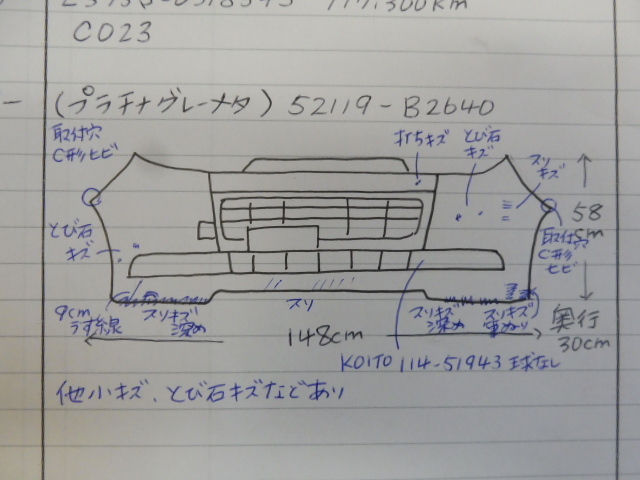 117,300km
C023
(プラチナグレーメタ) 52119-B2640
取付穴
C形ヒビ
打ちキズ
とび石
キズ
スリ
キズ
58
cm
とび石
キズ
取付穴
C形
ヒビ
9cm
うす線
スリキズ
深め
スリ
スリキズ
深め
スリキズ
重ねり
148cm
奥行
30cm
KOITO 114-51943 球なし
他小キズ、とび石キズなどあり